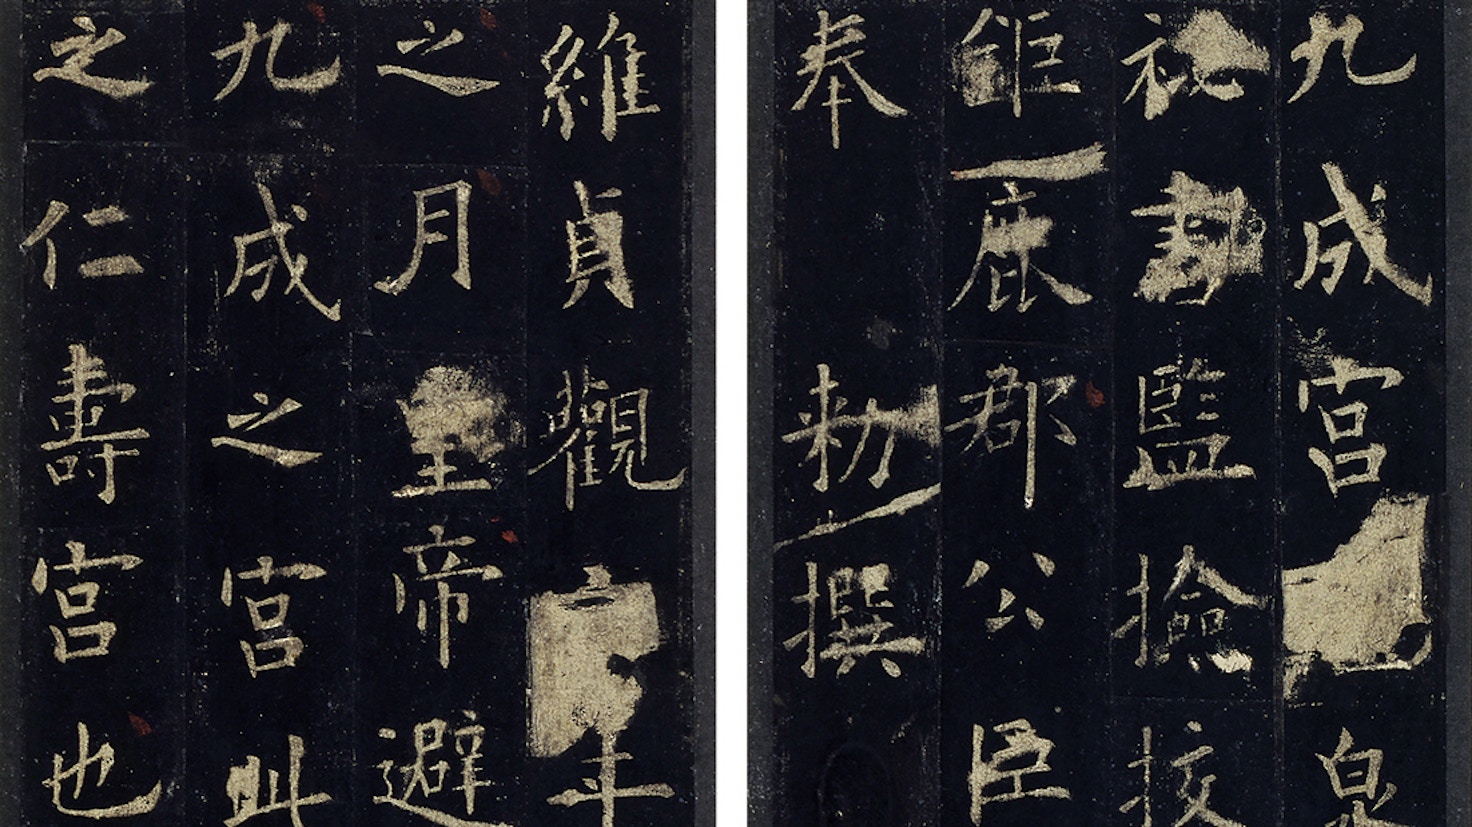 九成宮泉
秘書監撿挍
鉅鹿郡公臣
奉勑撰
維貞觀年
之月皇帝避
九成之宮此
之仁壽宮也